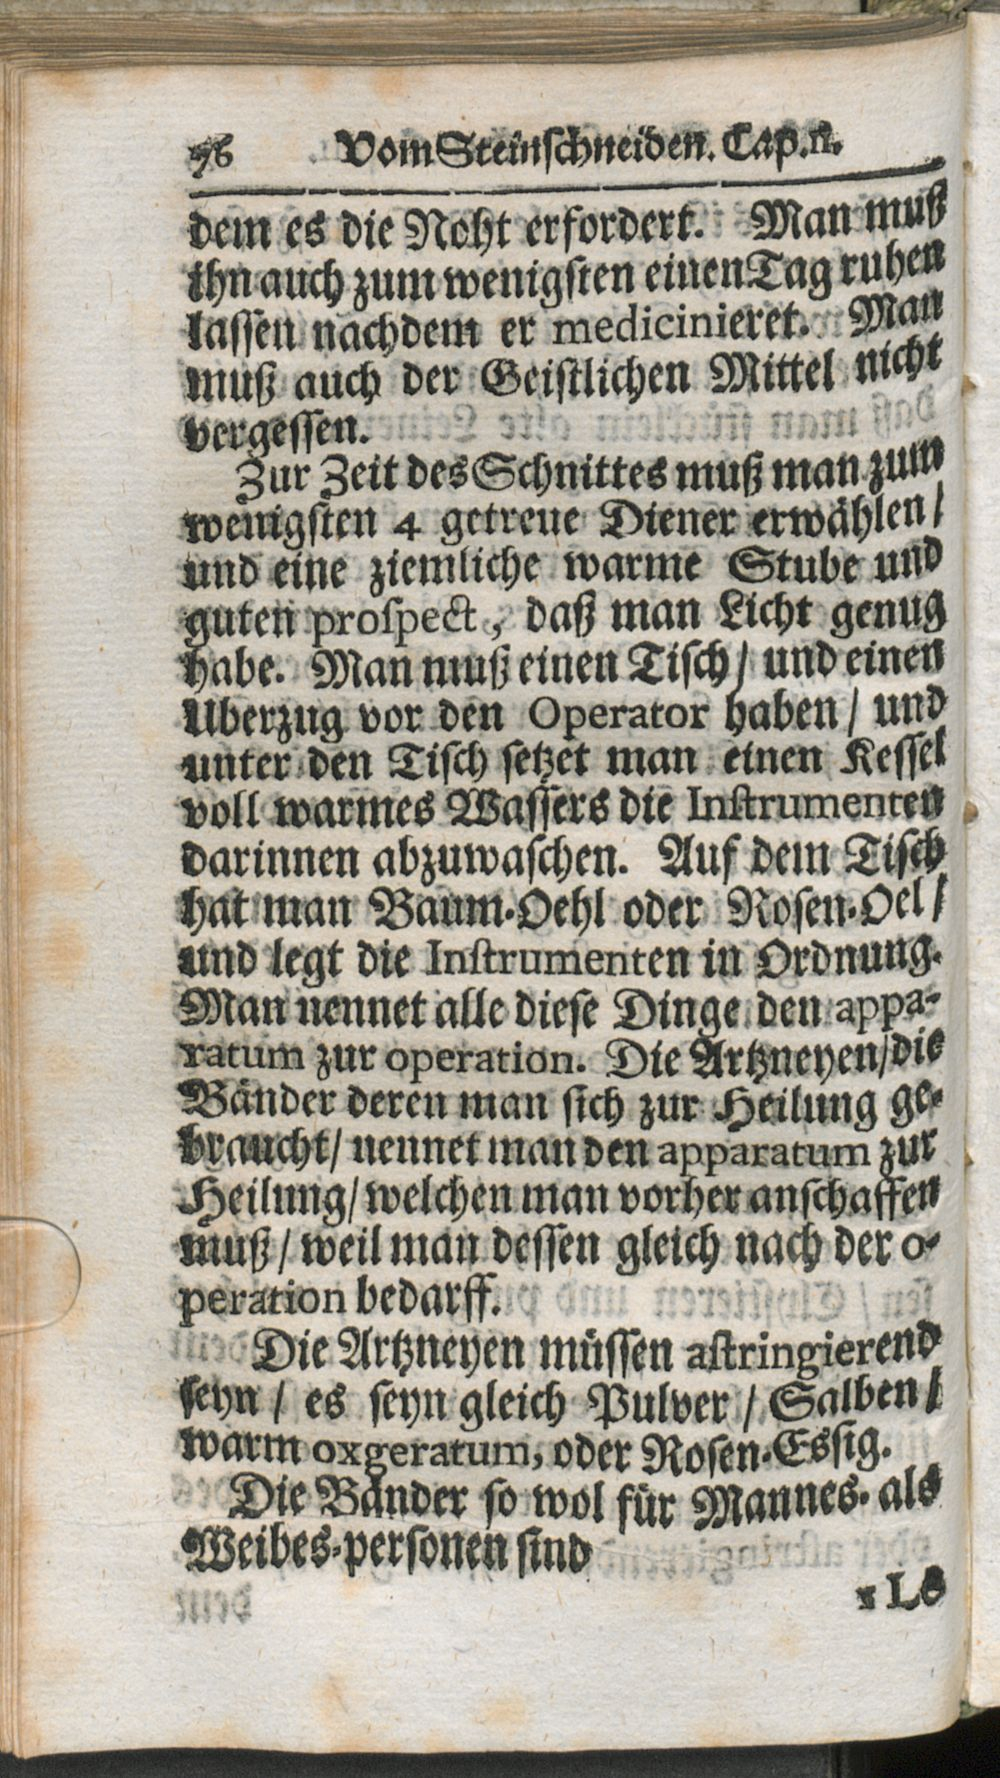 76 Vom Steinschneiden. Cap. n.
dem es die Noht erfordert. Man muß
ihn auch zum wenigsten einen Tag ruhen
lassen nachdem er medicinieret. Man
muß auch der Geistlichen Mittel nicht
vergessen.
Zur Zeit des Schnittes muß man zum
wenigsten 4 getreue Diener erwählen /
und eine ziemliche warme Stube und
guten prospect, daß man Licht genug
habe. Man muß einen Tisch / und einen
Uberzug vor den Operator haben / und
unter den Tisch setzet man einen Kessel
voll warmes Wassers die Instrumenten
darinnen abzuwaschen. Auf dem Tisch
hat man Baum-Oehl oder Rosen-Oel /
und legt die Instrumenten in Ordnung.
Man nennet alle diese Dinge den appa-
ratum zur operation. Die Artzneyen / die
Bänder deren man sich zur Heilung ge-
braucht / nennet man den apparatum zur
Heilung / welchen man vorher anschaffen
muß / weil man dessen gleich nach der o-
peration bedarff.
Die Artzneyen müssen astringierend
seyn / es seyn gleich Pulver / Salben /
warm oxgeratum, oder Rosen-Essig.
Die Bänder so wol für Mannes- als
Weibes-personen sind
1 L8